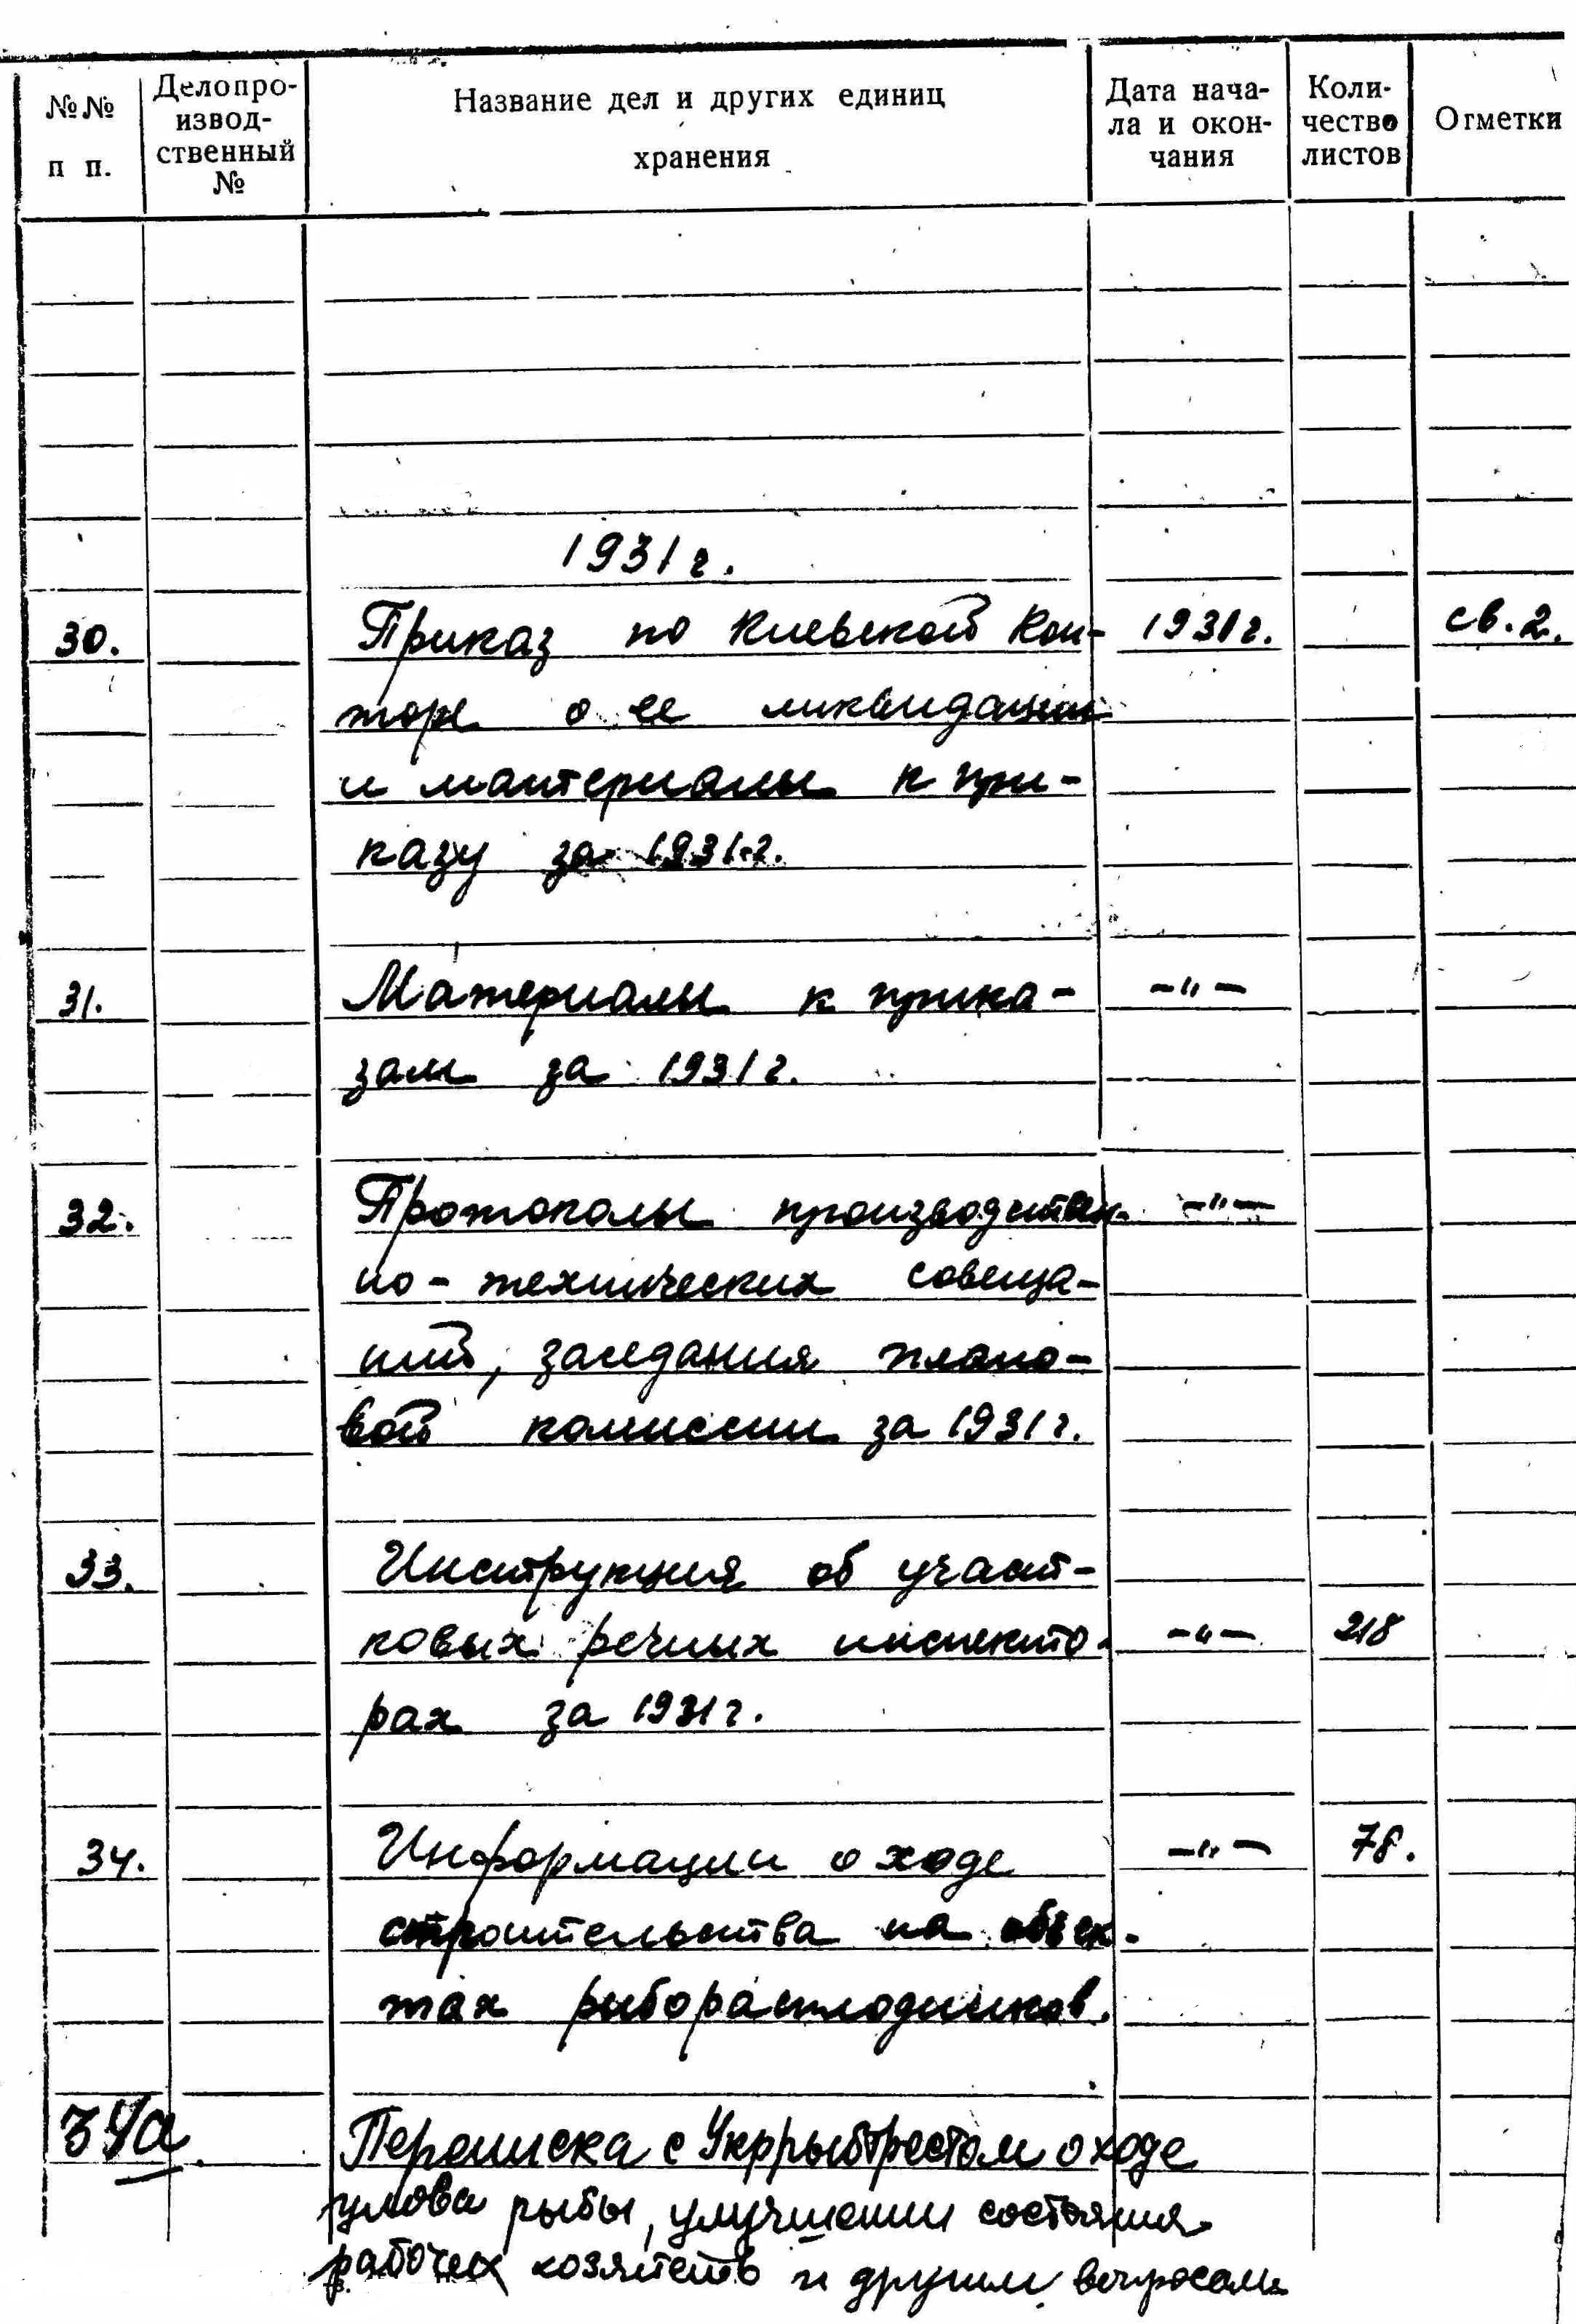 №№ п п.
Делопро-
извод-
ственный
№
Название дел и других единиц
хранения
Дата нача-
ла и окон-
чания
Коли-
чество
листов
Отметки
1931 г.
30. Приказ по Киевской Кон- 1931 г. св. 2.
торе о ее ликвидации
и материалы к при-
казу за 1931 г.
31. Материалы к прика- -"-
зам за 1931 г.
32. Протоколы производствен- -"-
но-технических совеща-
ний, заседания плано-
вой комиссии за 1931 г.
33. Инструкция об участ-
ковых речных инспекто- -"- 218
рах за 1931 г.
34. Информации о ходе -"- 78.
строительства на объек-
тах риборасплодников.
34а. Переписка с Укррыбтрестом о ходе
улова рыбы, улучшении состояния
рабочих хозяйств и другим вопросам